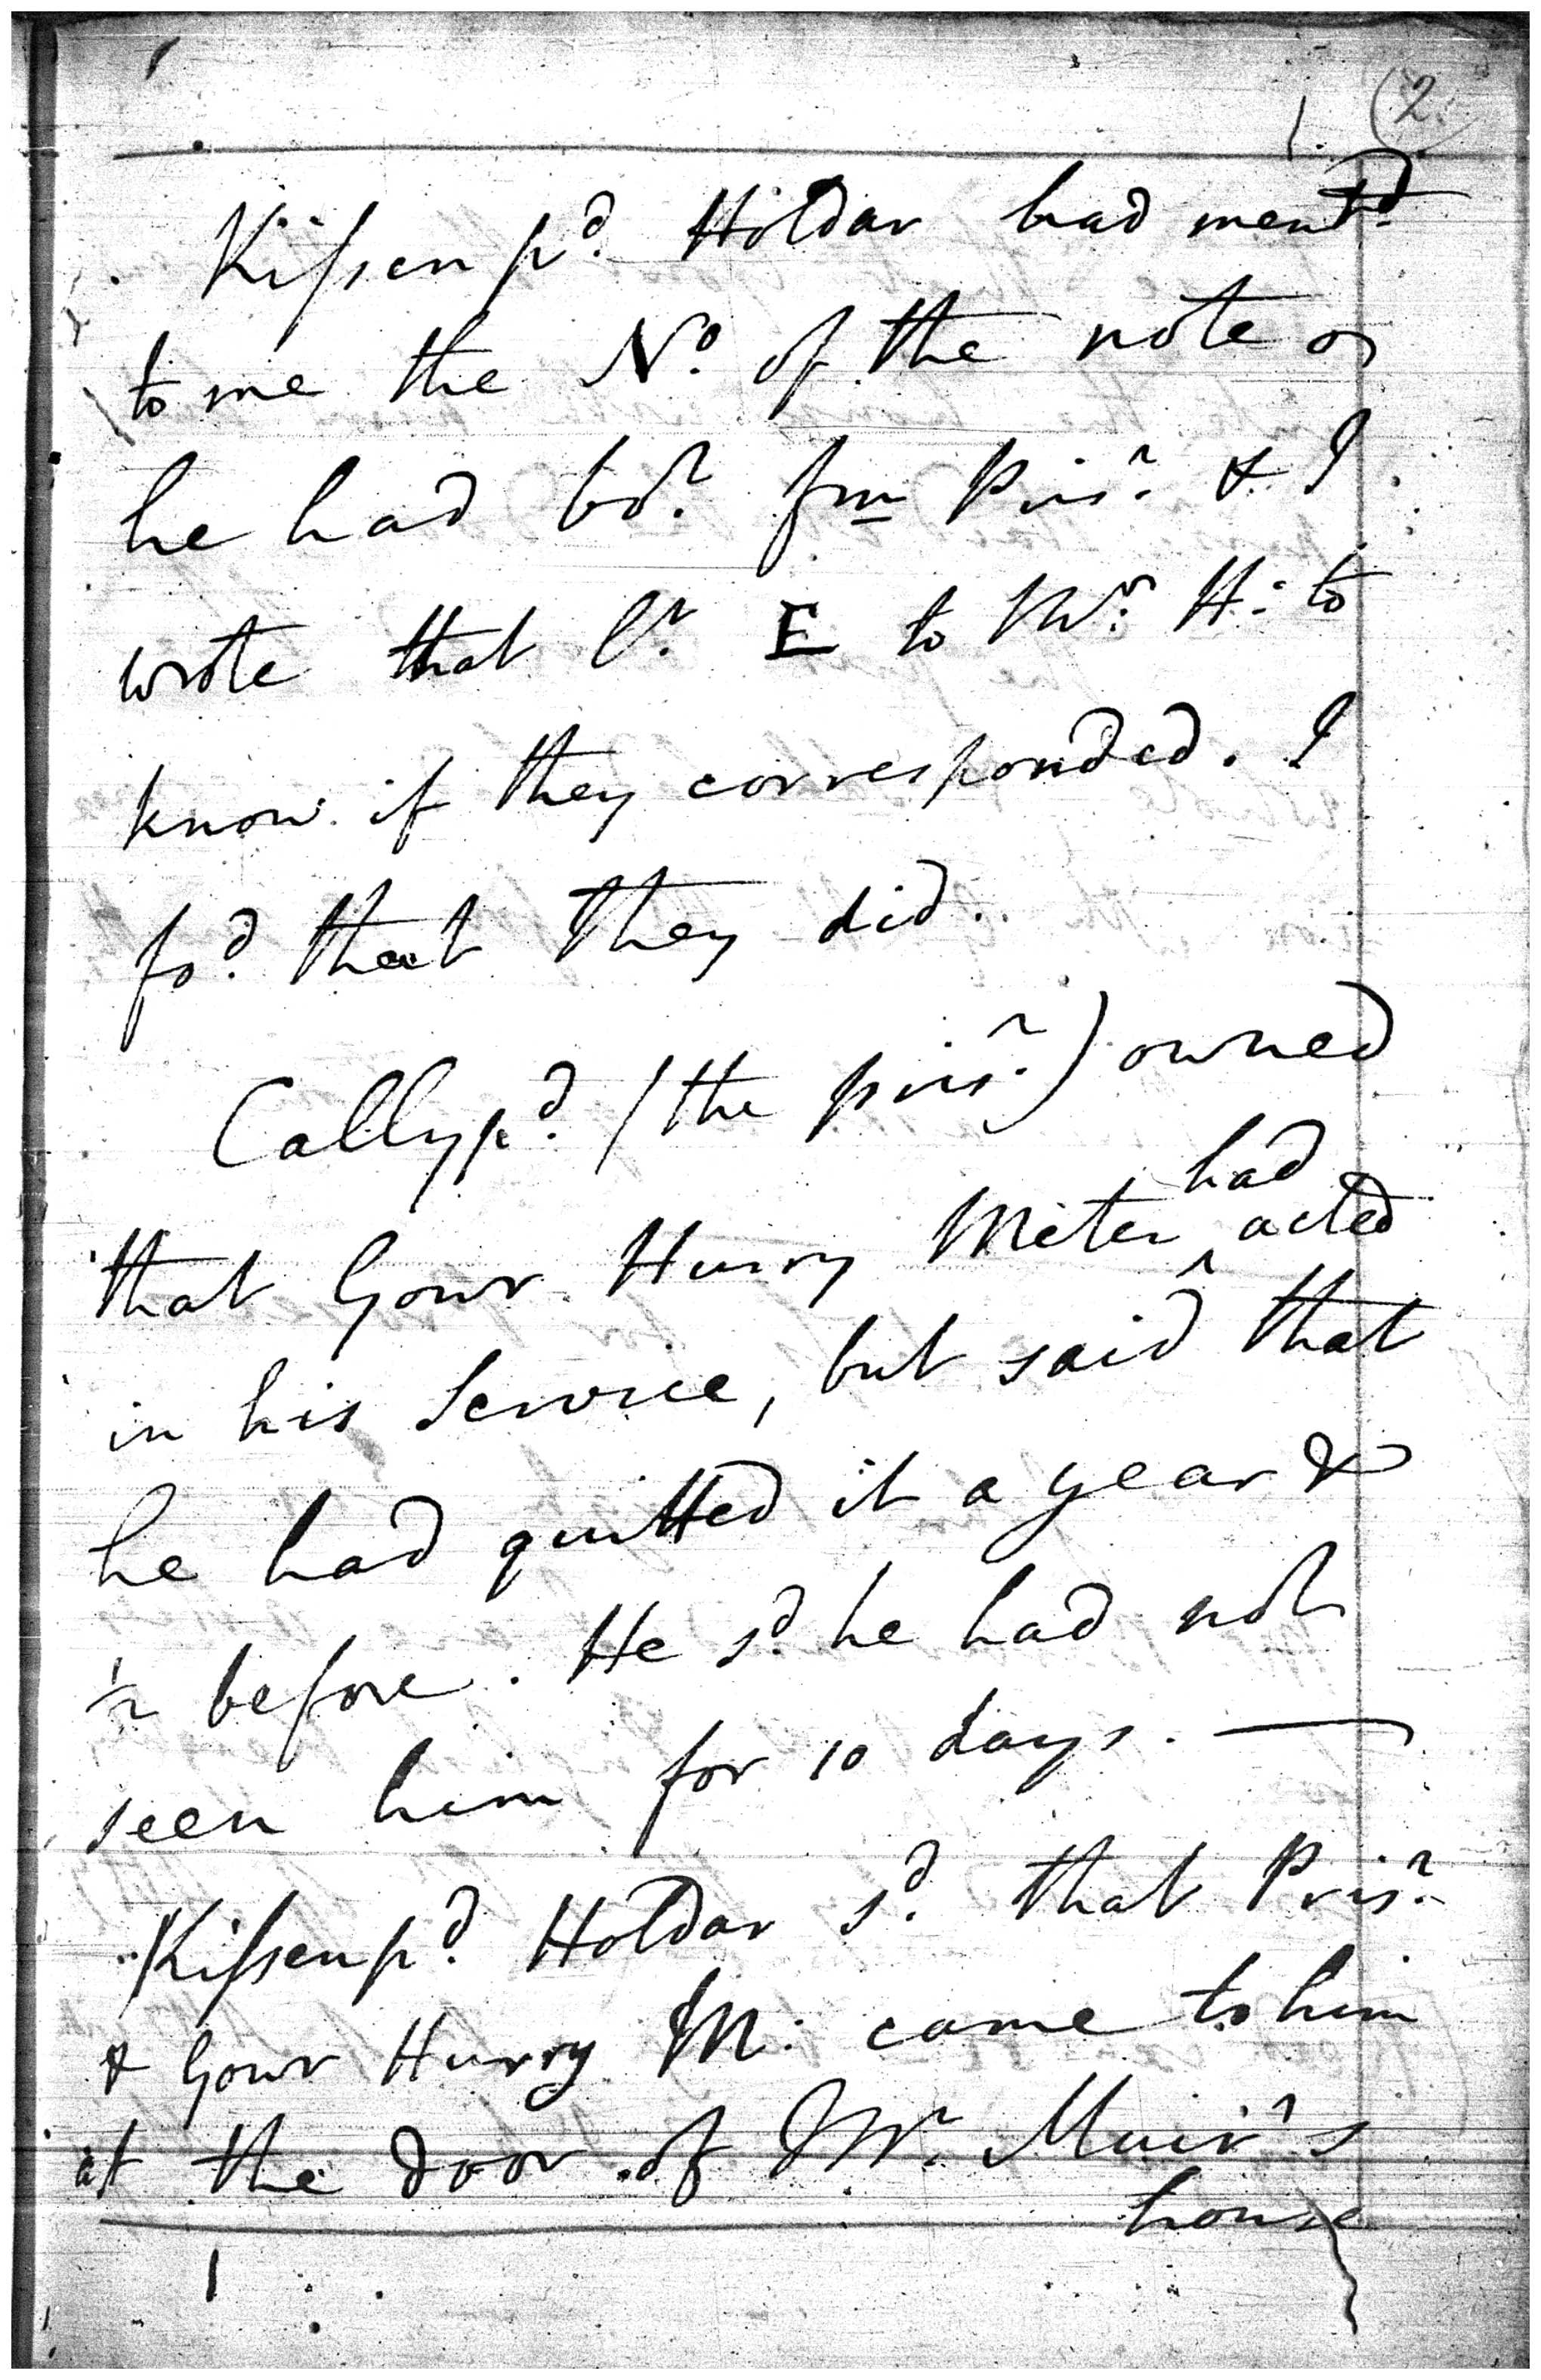 1. (2.
Kissenp^d. Holdar had ment^d.
to me the N^o. of the note
he had bo^t. fm Pris^r. & I
wrote that E to M^r. H: to
know if they corresponded. I
fo^d. that they did.
Callyp^d. (the pris^r.) owned
had
that Gowr Hurry Meter ^ acted
in his Service, but said that
he had quitted it a year &
1/2 before. He s^d. he had not
seen him for 10 days. —
Kissenp^d. Holdar s^d. that Pris^r.
& Gowr Hurry M: came to him
at the door of M^r. Muir's
house